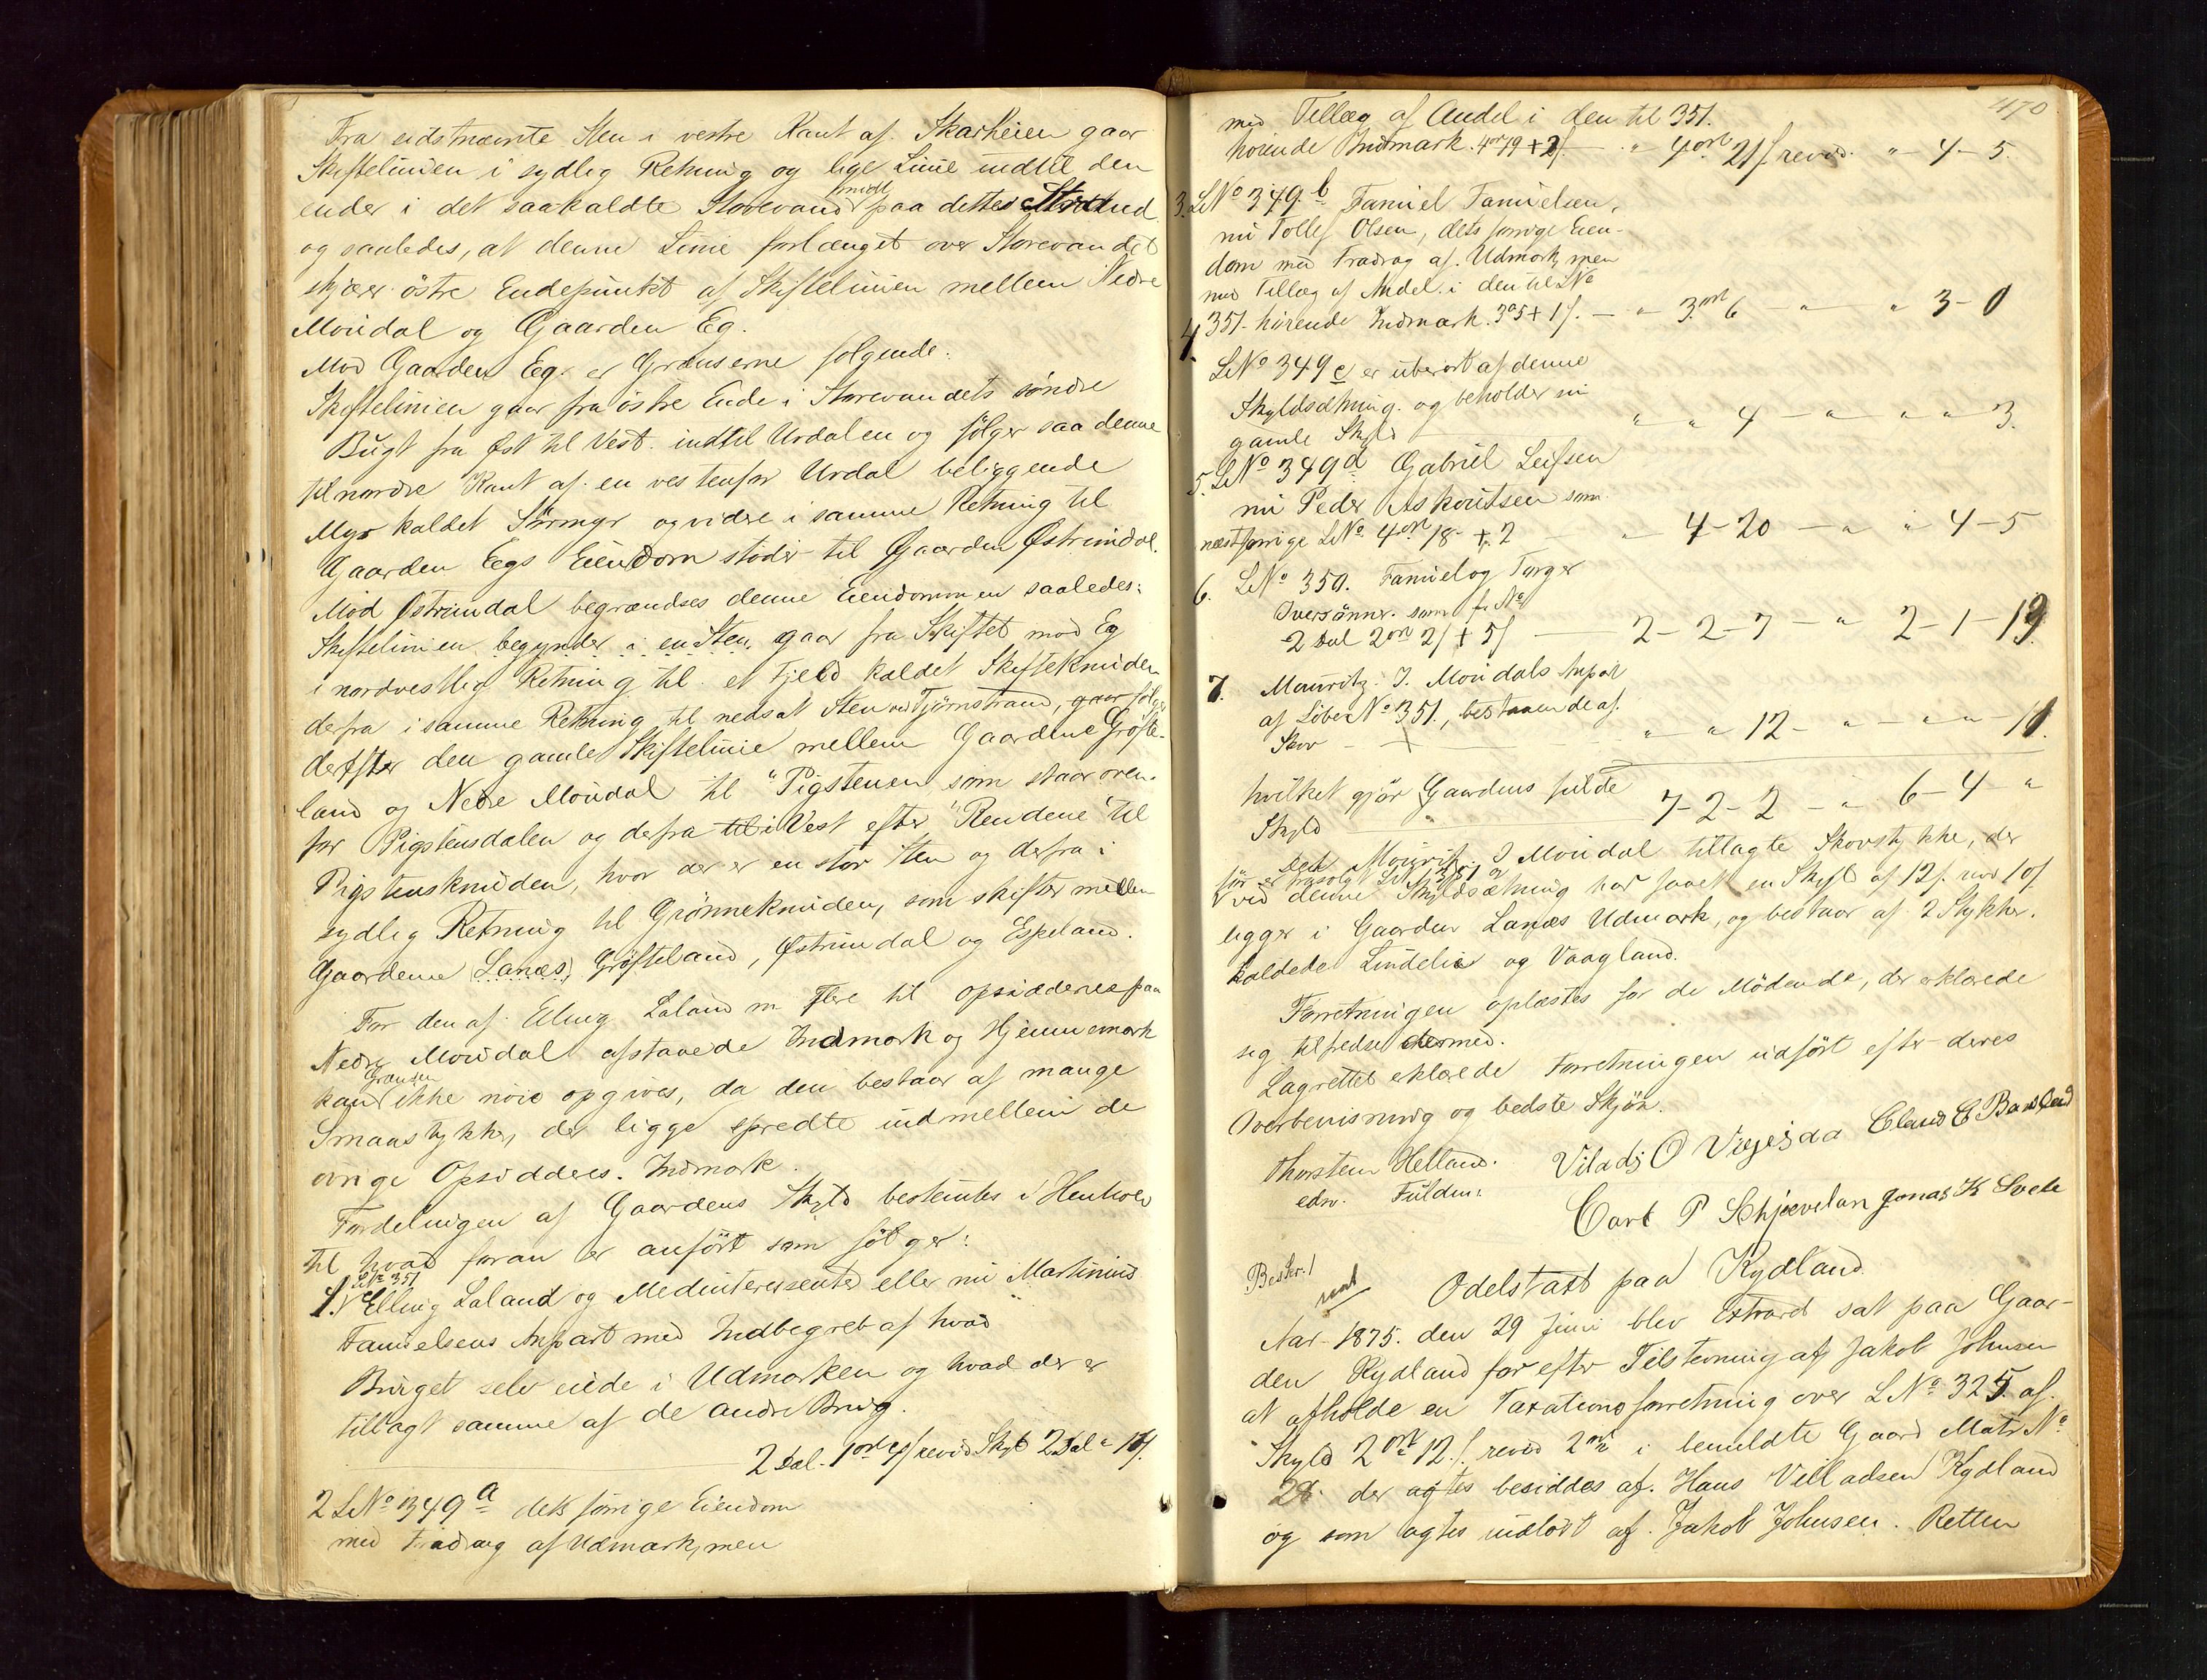 Fra sidstnævnte Sten i vestre Kant af Skarheien gaar
Skiftelinien i sydlig Retning og lige Linie indtil den
ender i det saakaldte Storevand paa dettes Strand
og saaledes, at denne Linie forlænget over Storevandet
skjærer östre Endepunkt af Skiftelinien mellem Nedre
Moudal og Gaarden Eg.
Mod Gaarden Eg er Grændserne følgende:
Skiftelinien gaar fra östre Ende i Storevandets söndre
Bugt fra Øst til Vest indtil Urdalen og fölger saa denne
til nordre Kant af en vestenfor Urdal beliggende
Myr kaldet Störmyr og videre i samme Retning til
Gaarden Eegs Eiendom stöder til Gaarden Østrimdal.
Mod Østrimdal begrændses denne Eiendommen saaledes:
Skiftelinien begynder i en Sten, gaar fra Skiftet mod Eg
i nordvestlig Retning til et Fjeld kaldet Skifteknuden
derfra i samme Retning til nedsat Sten ved Tjörnstrand, gaar fölger
derefter den gamle Skiftelinie mellem Gaardene Gröfte-
land og Nedre Moudal til "Pigstenen som staar oven-
for Pigstensdalen og derfra til i Vest efter "Rendene" til
Pigstensknuden, hvor der er en stor Sten og derfra i
sydlig Retning til Grönneknuden, som skifter mellem
Gaardene Lanæs, Gröfteland, Østrimdal og Espeland.
For den af Elling Laland m Flere til Opsiddernes paa
Nedre Moudal afstaaede Indmark og Hjemmemark
kan Grænsen ikke nöie opgives, da den bestaar af mange
Smaastykker, der ligge spredte indmellem de
övrige Opsidderes Indmark.
Fordelingen af Gaardens Skyld bestemtes i Henhold
til hvad foran er anfört som fölger:
1. LNo 351 Elling Laland og Medinteressenter eller nu Martinius
Samuelsens Anpart med Indbegreb af hvad
Bruget selv eiede i Udmarken og hvad der er
tillagt samme af de andre Brug.
2 Dal. 1 ort revid Skyld 2 Dal
2 LNo 349 a dets förrige Eiendom
med Fradrag af Udmark, men
470
med Tillæg af Andel i den til 351.
hörende Indmark. 4 ort 19 + 2 f — " 4 ort 21 f revid. " 4-5.
3. LNo 349 b Samuel Samuelsen,
nu Tollef Olsen, dets forrige Eien-
dom med Fradrag af Udmark, men
med Tillæg af Andel i den til LNo
351 hörende Indmark. 3 o 5 + 1 f. — " 3 ort 6 " " 3-0
4.
LNo 349 c er uberört af denne
Skyldsætning og beholder sin
gamle Skyld " " 4 — " " " 3.
5. LNo 349 d Gabriel Leifsen
nu Peder Askoutsen som
næstforrige LNo 4 ort 18 + 2 " 4-20 — " " 4-5
6. LNo 350. Samuel og Torger
Iversönner som f. No
2 Dal 2 ort 2 f + 5 f — 2-2-7 — " 2-1-19
7. Mauritz J. Moudals Anpart
af LöbeNo 351, bestaaende af
Skov — " " 12 — " — " " — 11.
hvilket gjör Gaardens fulde
Skyld 7-2-2 — " 6-4 "
Det Mouritz J Moudal tillagte Skovstykke, der
för er frasolgt LNo 351
ved denne Skyldsætning har faaet en Skyld af 12 f. revid 10 f
ligger i Gaarden Lanæs Udmark, og bestaar af 2 Stykker.
kaldede Lindelia og Vaagland.
Forretningen oplæstes for de Mödende, der erklærede
sig tilfredse dermed.
Lagrettet erklærede Forretningen udfört efter deres
Overbevisning og bedste Skjön.
Thorsten Helland. Viladj O Eland E Bauslad
edsv. Fuldm: Carl P Schjævelan Jonas K Svela
Besker. 1
Odelstaxt paa Rydland
Aar 1875. den 29 Juni blev Extraret sat paa Gaar-
den Rydland for efter Tilstevning af Jakob Johnsen
at afholde en Taxationsforretning over LNo 325 af
Skyld 2 ort 12 f. revid 2 ort i bemeldte Gaard Matr No
28 der agtes besiddes af Hans Villadsen Rydland
og som agtes indlöst af Jakob Johnsen. Retten